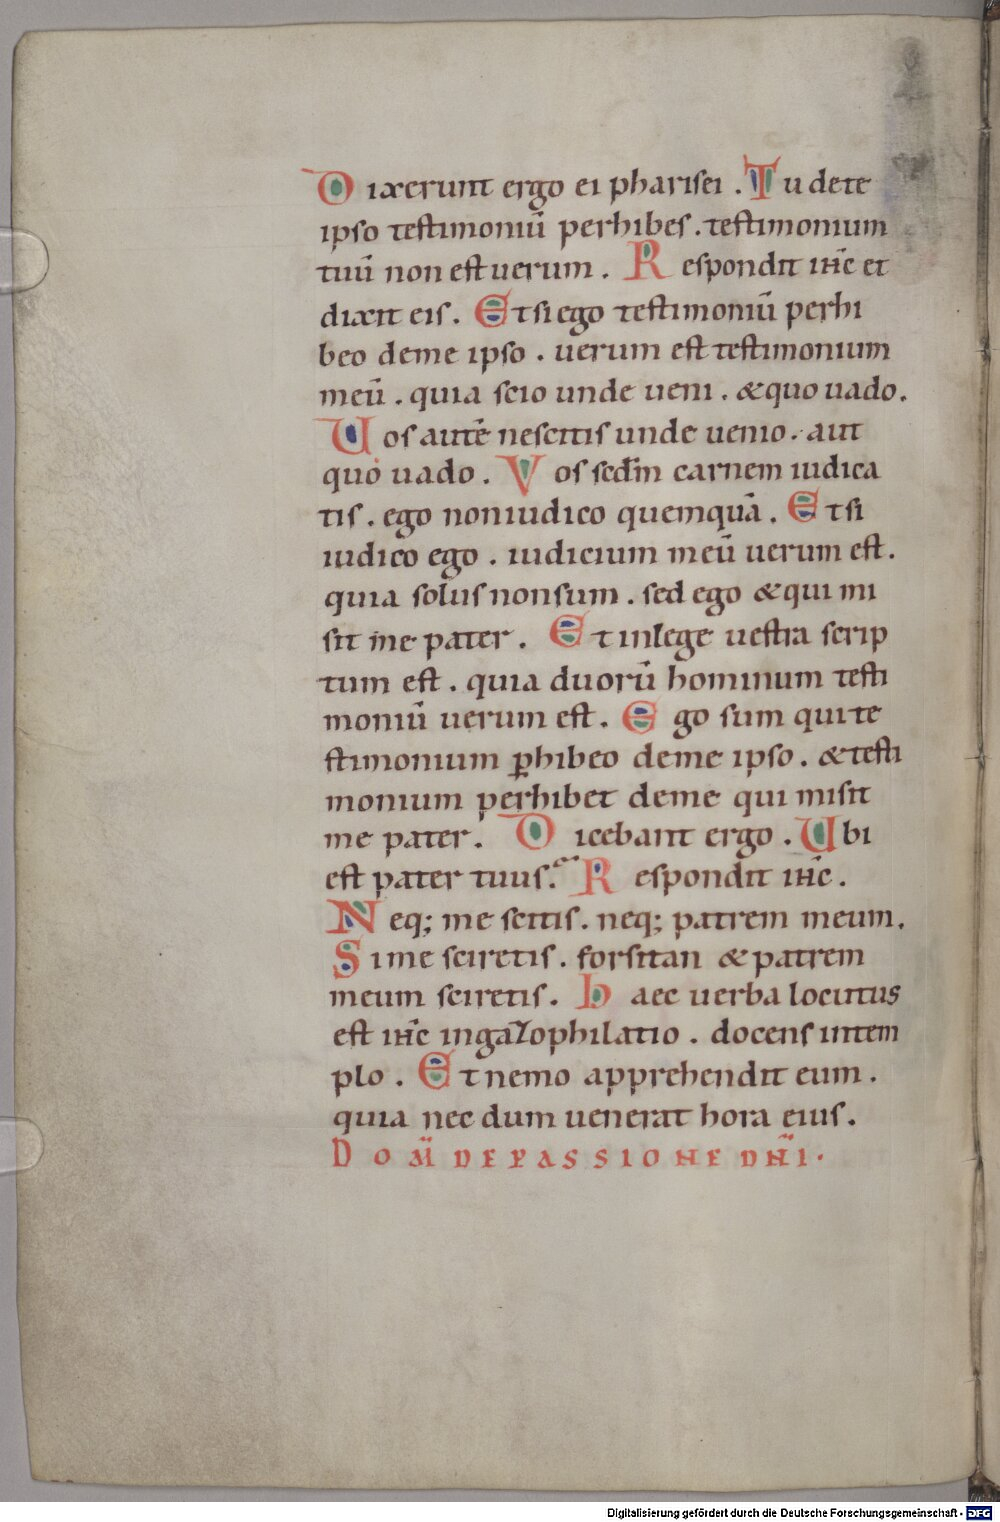 Dixerunt ergo ei pharisei . Tu dete
ipso testimoniū perhibes . testimonium
tuū non est uerum . Respondit ihc̄ et
dixit eis . Et si ego testimoniū perhi
beo deme ipso . uerum est testimonium
meū . quia scio unde ueni . & quo uado .
Uos autē nescitis unde uenio . aut
quo uado . Vos scdm̄ carnem iudica
tis . ego non iudico quemquā . Et si
iudico ego . iudicium meū uerum est .
quia solus non sum . sed ego & qui mi
sit me pater . Et in lege uestra scrip
tum est . quia duorū hominum testi
moniū uerum est . Ego sum qui te
stimonium ꝑhibeo deme ipso . & testi
monium perhibet deme qui misit
me pater . Dicebant ergo . Ubi
est pater tuus . Respondit ihc̄ .
Neq; me scitis . neq; patrem meum .
Si me sciretis . forsitan & patrem
meum sciretis . haec uerba locutus
est ihc̄ in gazophilatio . docens in tem
plo . Et nemo apprehendit eum .
quia nec dum uenerat hora eius .
DOM̄ DE PASSIONE DN̄I .
Digitalisierung gefördert durch die Deutsche Forschungsgemeinschaft - DFG